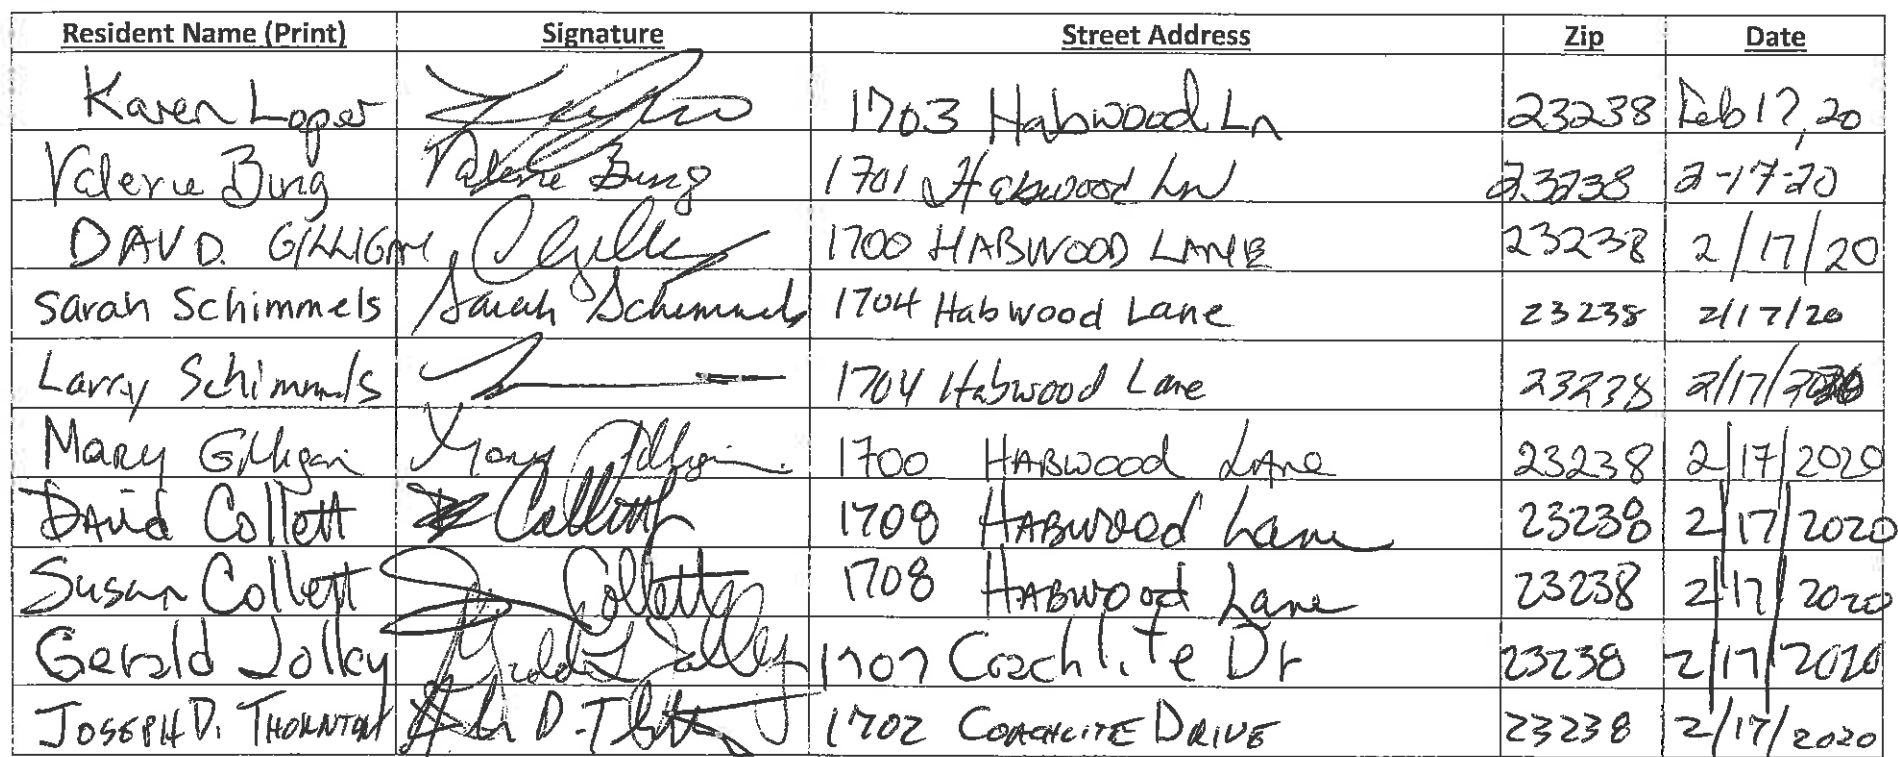 Resident Name (Print) Signature Street Address Zip Date
Karen Loper 1703 Habwood Ln 23238 Feb 17, 20
Valerie Bung Valerie Bung 1701 Habwood LN 23238 2-17-20
DAVD. GILLIGAN 1700 HABWOOD LANE 23238 2/17/20
Sarah Schimmels Sarah Schimmels 1704 Habwood Lane 23238 2/17/20
Larry Schimmels 1704 Habwood Lane 23238 2/17/2020
Mary Gilligan Mary Gilligan 1700 HABWOOD LANE 23238 2/17/2020
David Collett Collett 1708 HABWOOD Lane 23238 2/17/2020
Susan Collett Collett 1708 HABWOOD Lane 23238 2/17/2020
Gerald Jolley Gerald L Jolley 1707 Coachlite Dr 23238 2/17/2020
JOSEPH D. THORNTON 1702 COACHLITE DRIVE 23238 2/17/2020